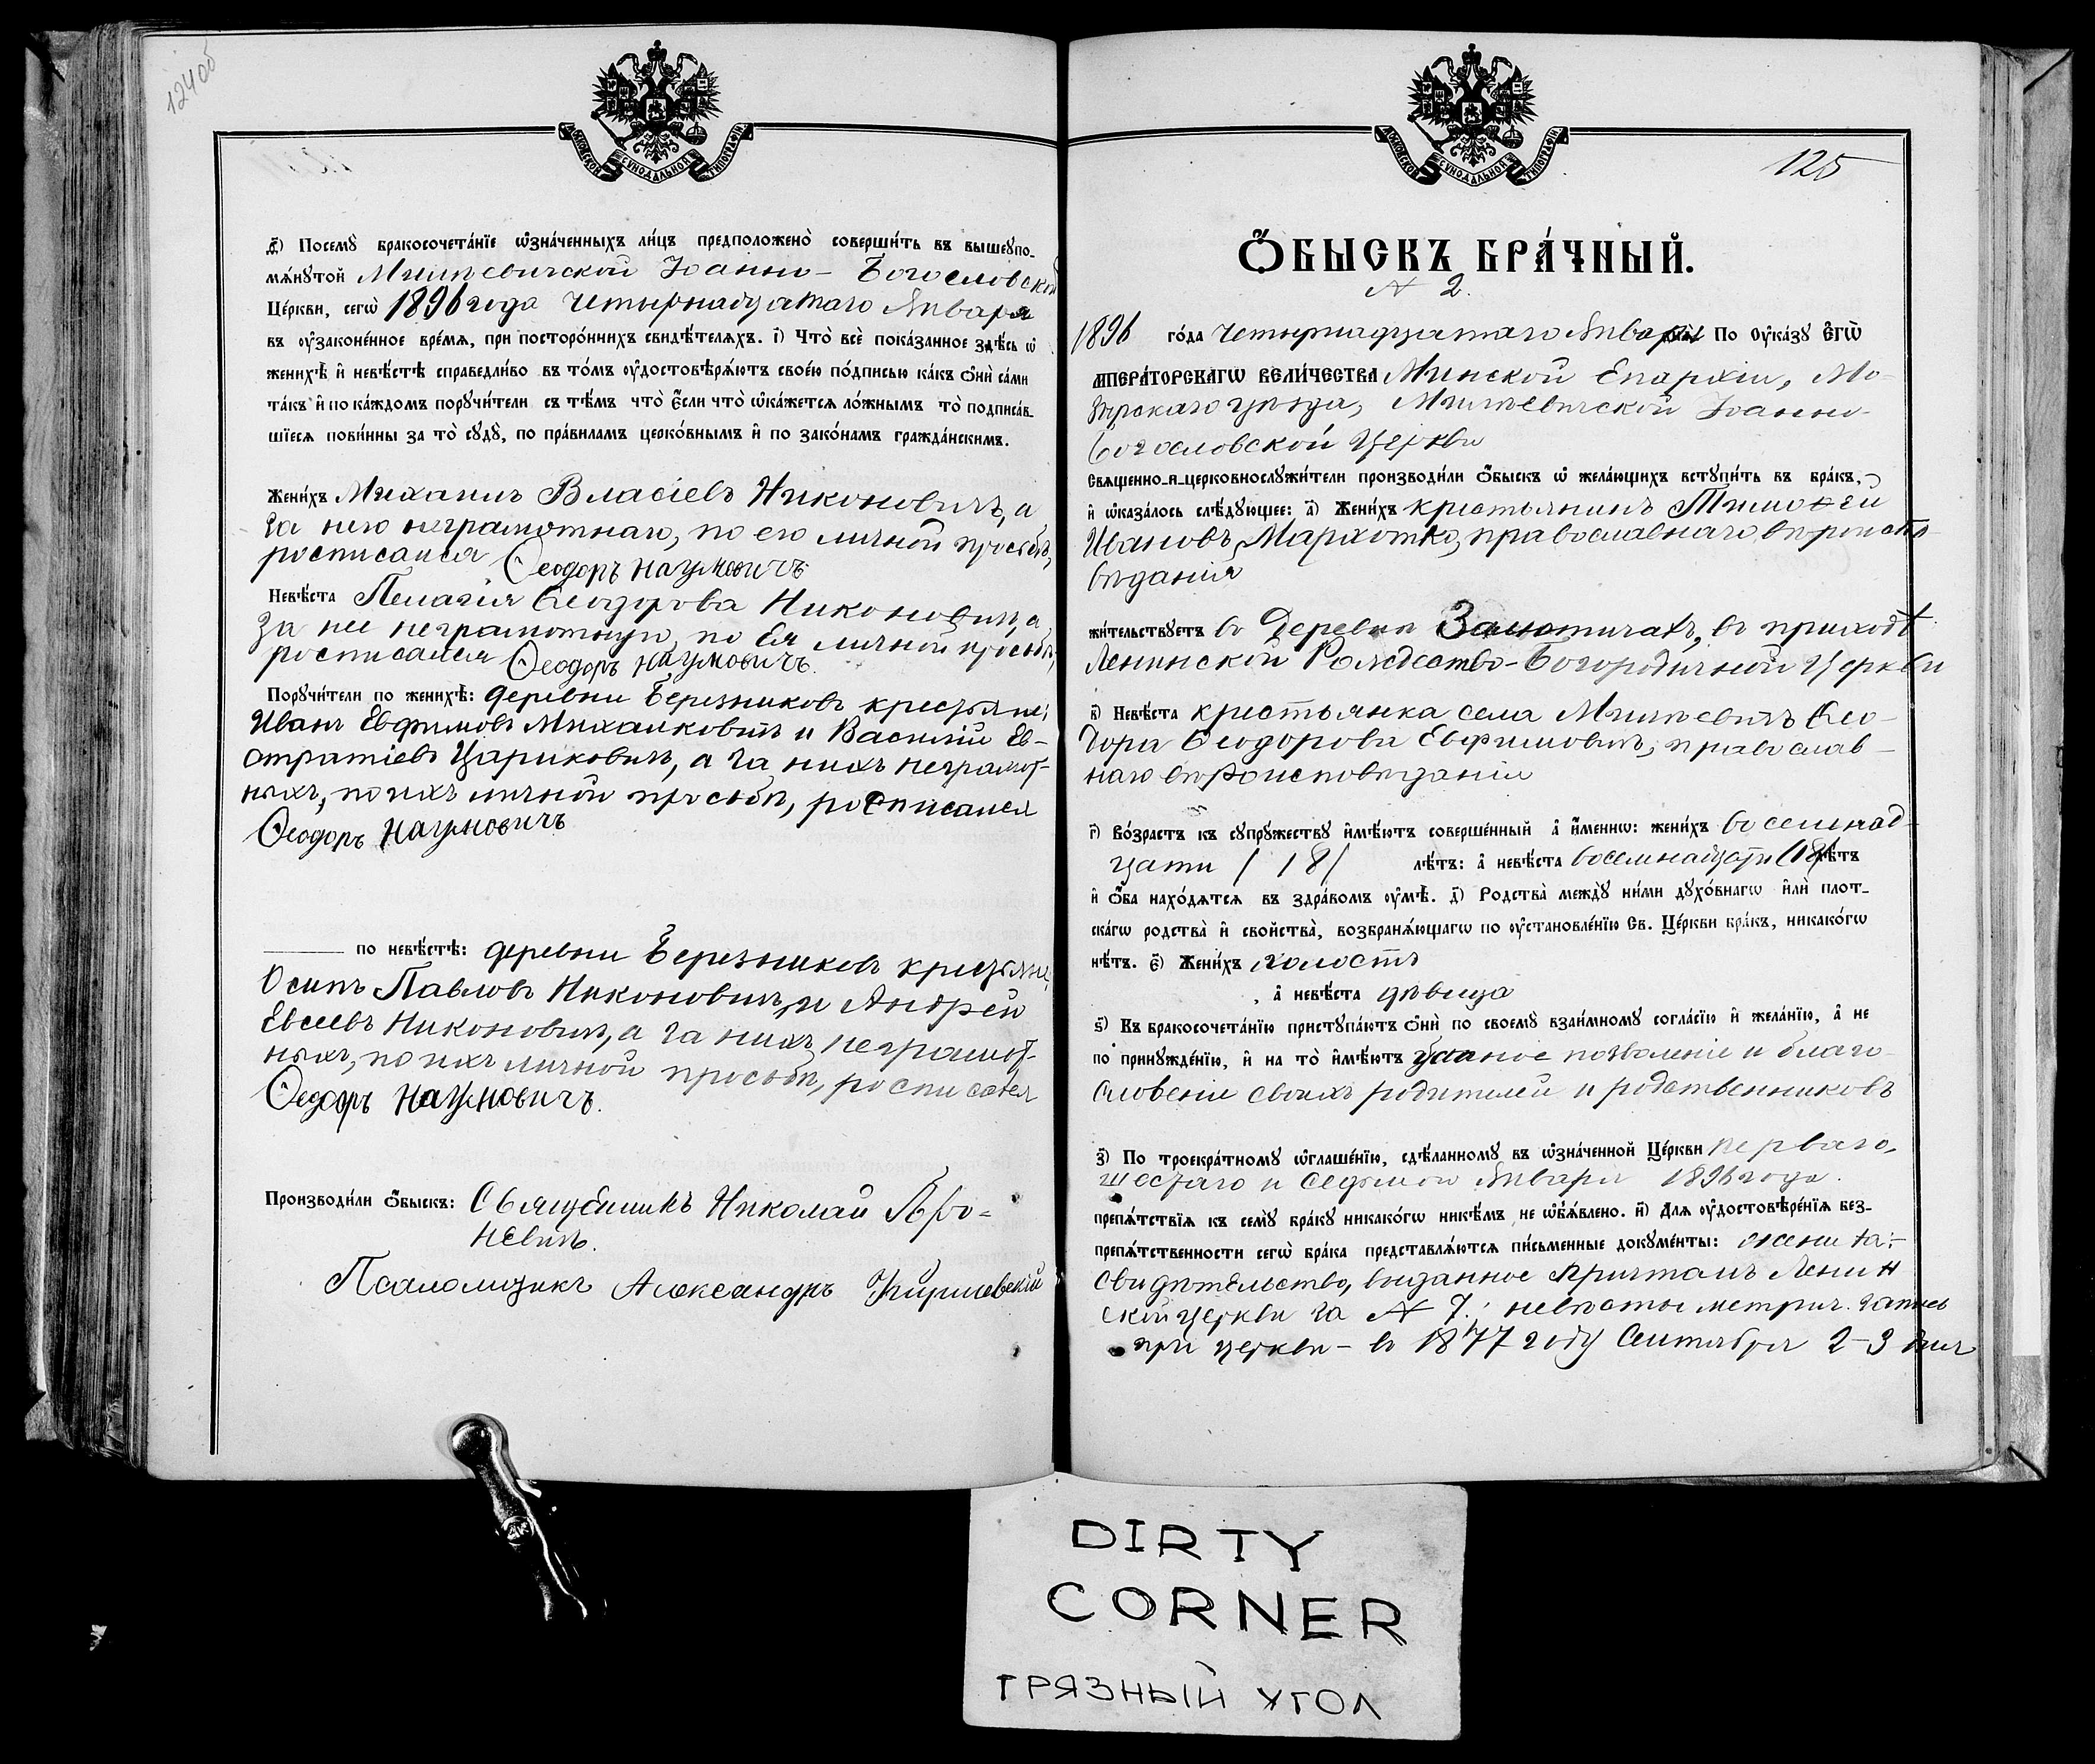 124об
МОСКОВСКОЙ СѴНОДАЛЬНОЙ ТИПОГРАФІИ
ѳ҃) Посемꙋ̀ бракосочета́нїе ѡ҆зна́ченныхъ ли́цъ предположено̀ соверши́ть въ вышеꙋпо-
мѧ́нꙋтой Милевичской Іоанно-Богословской
Це́ркви, сегѡ̀ 1896 года четырнадцатаго Января
въ ᲂу҆зако́ненное вре́мѧ, при посторо́ннихъ свидѣ́телѧхъ. і҃) Что̀ всѐ пока́занное здѣ́сь ѡ҆
женихѣ̀ и҆ невѣ́стѣ справедли́во въ то́мъ ᲂу҆достовѣрѧ́ютъ свое́ю по́дписью ка́къ ѻ҆нѝ са́ми
та́къ и҆ по ка́ждомъ порꙋчи́тели съ тѣ́мъ что̀ є҆́сли что̀ ѡ҆ка́жетсѧ ло́жнымъ то̀ подписа́в-
шїесѧ пови́нны за то̀ сꙋдꙋ̀, по пра́виламъ церко́внымъ и҆ по зако́намъ гражда́нскимъ.
Жени́хъ Михаилъ Власіевъ Никоновичъ, а
за него неграмотнаго, по его личной просьбѣ,
росписался Ѳеодоръ Наумовичъ
Невѣ́ста Пелагія Ѳеодорова Никоновичъ, а
за нее неграмотную, по Ея личной просьбѣ,
росписался Ѳеодоръ Наумовичъ.
Порꙋчи́тели по женихѣ̀: деревни Березниковъ крестьяне:
Иванъ Евфимовъ Михалковичъ и Василій Ев-
стратіевъ Цариковичъ, а за нихъ неграмот-
ныхъ, по ихъ личной просьбѣ, росписался
Ѳеодоръ Наумовичъ
по невѣ́стѣ: деревни Березниковъ крестьяне,
Осипъ Павловъ Никоновичъ и Андрей
Евсеевъ Никоновичъ, а за нихъ неграмот-
ныхъ, по ихъ личной просьбѣ, росписался
Ѳеодоръ Наумовичъ.
Производи́ли ѻ҆́быскъ: Священникъ Николай Яро-
невичъ.
Псаломщикъ Александръ
МОСКОВСКОЙ СѴНОДАЛЬНОЙ ТИПОГРАФІИ
125
Ѻ҆́БЫСКЪ БРА́ЧНЫЙ.
№ 2.
1896 го́да Четырнадцатаго Января По ᲂу҆ка́зꙋ Є҆гѡ̀
и҆мпера́торскагѡ вели́чества Минской Епархіи, Мо-
зырскаго уѣзда, Милевичской Іоанно-
Богословской Церкви
Свѧщенно-и-церковнослꙋжи́тели производи́ли ѻ҆́быскъ ѡ҆ жела́ющихъ встꙋпи́ть въ бра́къ,
и҆ ѡ҆каза́лось слѣ́дꙋющее: а҃) Жени́хъ крестьянинъ Тимоѳей
Ивановъ Мархотко, православнаго вѣроиспо-
вѣданія
жи́тельствꙋетъ въ Деревни Залютичахъ, въ приходѣ
Ленинской Рождество-Богородичной Церкви
в҃) Невѣ́ста крестьянка села Милевичъ Ѳео-
дора Ѳеодорова Евфимовичъ, православ-
наго вѣроисповѣданія
г҃) Во́зрастъ къ сꙋпрꙋ́жествꙋ и҆мѣ́ютъ соверше́нный а҆ и҆́менно: жени́хъ восемнад-
цати /18/ лѣ́тъ: а҆ невѣ́ста восемнадцати /18/ лѣ́тъ
и҆ ѻ҆́ба нахо́дѧтсѧ въ здра́вомъ ᲂу҆мѣ̀. д҃) Родства̀ междꙋ̀ ни́ми дꙋхо́внагѡ и҆лѝ плот-
ска́гѡ родства̀ и҆ свойства̀, возбранѧ́ющагѡ по ᲂу҆становле́нїю Св. Це́ркви бра́къ, никако́гѡ
нѣ́тъ. є҃) Жени́хъ холостъ
, а҆ невѣ́ста дѣвица
ѕ҃) Въ бракосочета́нїю пристꙋпа́ютъ ѻ҆нѝ по своемꙋ̀ взаи́мномꙋ согла́сїю и҆ жела́нїю, а҆ не
по принꙋжде́нїю, и҆ на то̀ и҆мѣ́ютъ устное позволеніе и благо-
словеніе своихъ родителей и родственниковъ
з҃) По троекра́тномꙋ ѡ҆глаше́нїю, сдѣ́ланномꙋ въ ѡ҆зна́ченной Це́ркви перваго,
шестаго и седьмого Января 1896 года.
препѧ́тствїѧ къ семꙋ̀ бра́кꙋ никако́гѡ никѣ́мъ не ѡ҆б̾ѧ́влено. и҃) Для ᲂу҆достовѣре́нїѧ без-
препѧ́тственности сегѡ̀ бра́ка представлѧ́ютсѧ пи́сьменные докꙋме́нты: жениха:-
свидѣтельство, выданное Причтомъ Ленин
ской церкви за № 7.; невѣсты метрич. запись
при церкви - въ 1877 году Сентября 2-3 дня
DIRTY
CORNER
ГРЯЗНЫЙ УГОЛ